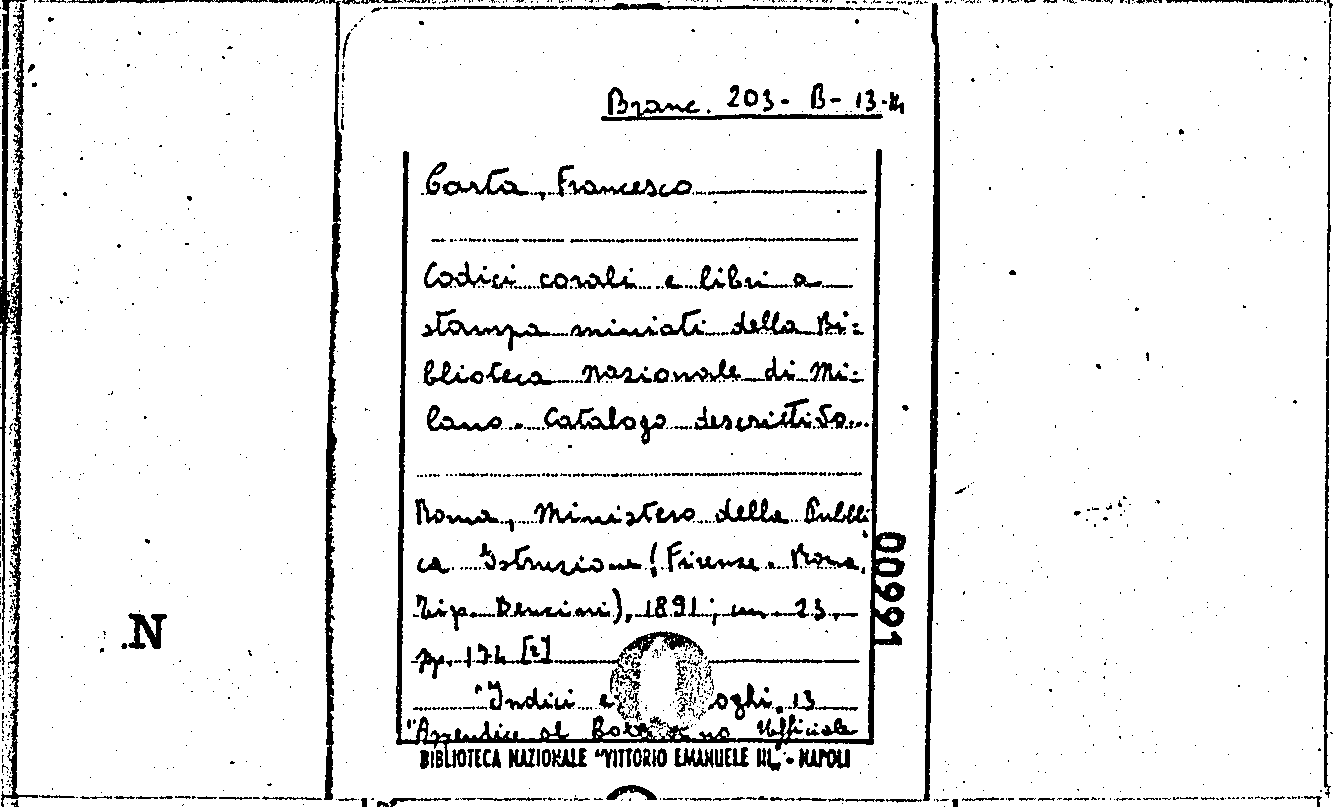 Branc. 203- B- 13-
Carta, Francesco
Codici corali e libri a
stampa miniati della Bi=
blioteca Nazionale di Mi=
lano. Catalogo descrittivo...
Roma, Ministero della Pubbli
ca Istruzione (Firenze. Roma,
Tip. Bencini), 1891; cm. 23.
pp. 174 [2]
"Indici e oghi, 13
"Appendice al Boll no Ufficiale
BIBLIOTECA NAZIONALE "VITTORIO EMANUELE III" - NAPOLI
00991
N